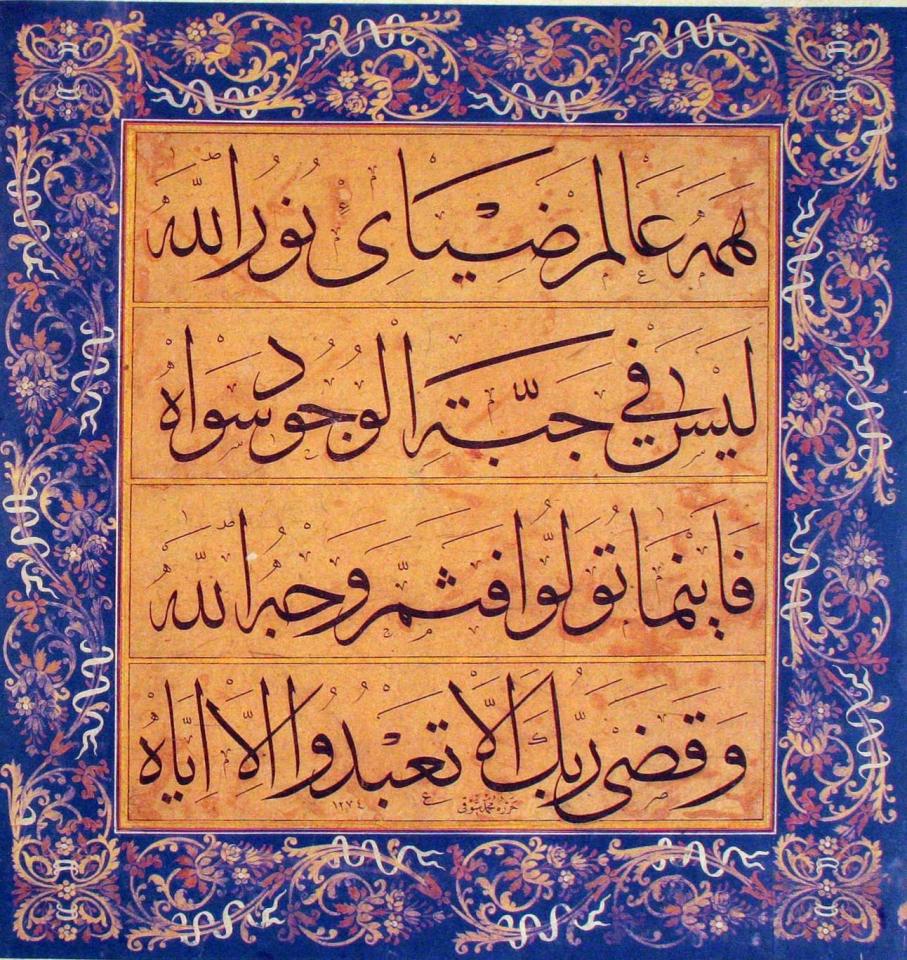 همه عالم ضیای نور الله
لیس فی جبّة الوجود سواه
فاینما تولّوا فثمّ وجه الله
و قضی ربّك الّا تعبدوا الّا ایّاه
حرره محمد شوقی ١٢٧٤